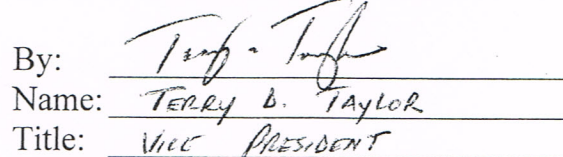 By:
Name: TERRY D. TAYLOR
Title: VICE PRESIDENT